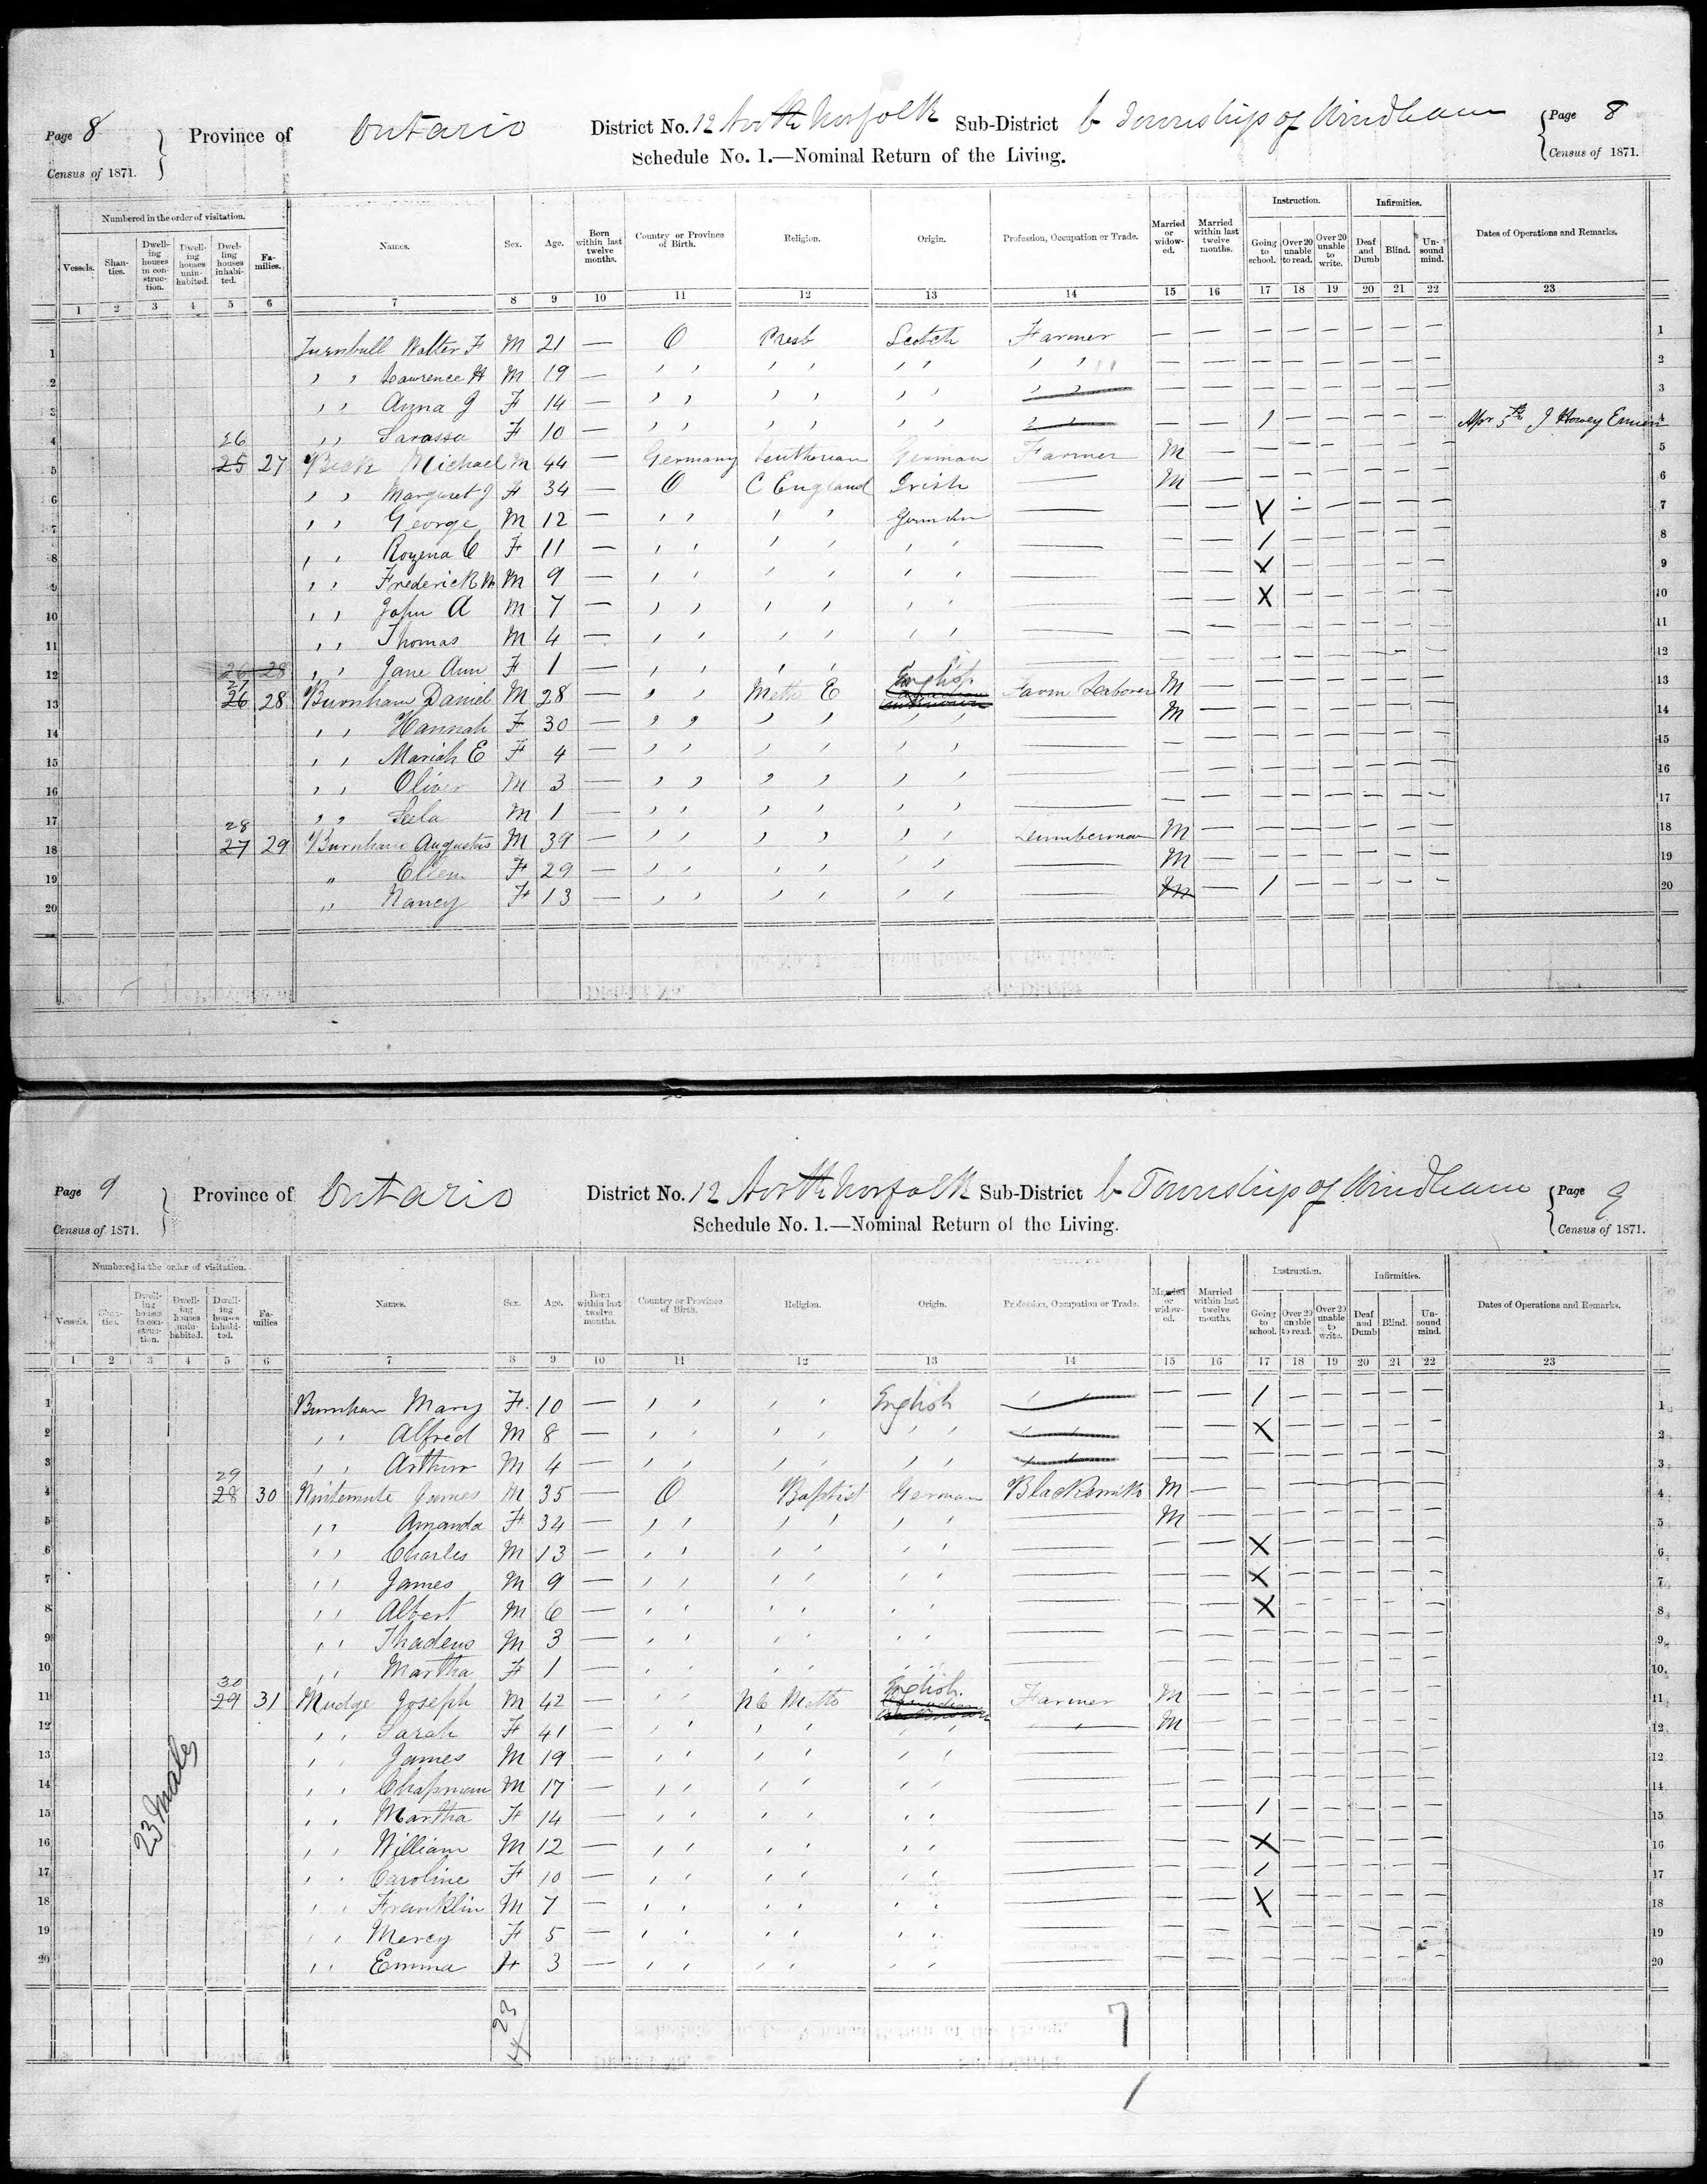 Page 8 Province of Ontario District No. 12 North Norfolk Sub-District b Township of Windham Page 8
Census of 1871. Schedule No. 1.—Nominal Return of the Living. Census of 1871.
Numbered in the order of visitation. Names. Sex. Age. Born within last twelve months. Country or Province of Birth. Religion. Origin. Profession, Occupation or Trade. Married or widowed. Married within last twelve months. Instruction. Infirmities. Dates of Operations and Remarks.
Vessels. Shanties. Dwelling houses in construction. Dwelling houses uninhabited. Dwelling houses inhabited. Families. Going to school. Over 20 unable to read. Over 20 unable to write. Deaf and Dumb Blind. Unsound mind.
1 2 3 4 5 6 7 8 9 10 11 12 13 14 15 16 17 18 19 20 21 22 23
1 Turnbull Walter F M 21 — O Presb Scotch Farmer — — — — — — — — 1
2 " " Lawrence H M 19 — " " " " " " " " — — — — — — — — 2
3 " " Anna J F 14 — " " " " " " " " — — — — — — — — 3
4 " " Sarassa F 10 — " " " " " " " " — — 1 — — — — — Apr 5th J Howey 4
5 26 25 27 Beck Michael M 44 — Germany Leutherian German Farmer M — — — — — — — 5
6 " " Margaret J F 34 — O C England Irish — M — — — — — — — 6
7 " " George M 12 — " " " " German — — — X — — — — — 7
8 " " Rozena C F 11 — " " " " " " — — — 1 — — — — — 8
9 " " Frederick W M 9 — " " " " " " — — — X — — — — — 9
10 " " John A M 7 — " " " " " " — — — X — — — — — 10
11 " " Thomas M 4 — " " " " " " — — — — — — — — — 11
12 26 28 " " Jane Ann F 1 — " " " " " " — — — — — — — — — 12
13 27 26 28 Burnham Daniel M 28 — " " Meth E English Farm Laborer M — — — — — — — 13
14 " " Hannah F 30 — " " " " " " — M — — — — — — — 14
15 " " Mariah E F 4 — " " " " " " — — — — — — — — — 15
16 " " Oliver M 3 — " " " " " " — — — — — — — — — 16
17 " " Leela M 1 — " " " " " " — — — — — — — — — 17
18 28 27 29 Burnham Augustus M 39 — " " " " " " Lumberman M — — — — — — — 18
19 " Ellen F 29 — " " " " " " — M — — — — — — — 19
20 " Nancy F 13 — " " " " " " — M — 1 — — — — — 20
Page 9 Province of Ontario District No. 12 North Norfolk Sub-District b Township of Windham Page 9
Census of 1871. Schedule No. 1.—Nominal Return of the Living. Census of 1871.
Numbered in the order of visitation. Names. Sex. Age. Born within last twelve months. Country or Province of Birth. Religion. Origin. Profession, Occupation or Trade. Married or widowed. Married within last twelve months. Instruction. Infirmities. Dates of Operations and Remarks.
Vessels. Shanties. Dwelling houses in construction. Dwelling houses uninhabited. Dwelling houses inhabited. Families Going to school. Over 20 unable to read. Over 20 unable to write. Deaf and Dumb Blind. Unsound mind.
1 2 3 4 5 6 7 8 9 10 11 12 13 14 15 16 17 18 19 20 21 22 23
1 Burnham Mary F 10 — " " " " English — — — 1 — — — — — 1
2 " " Alfred M 8 — " " " " " " — — — X — — — — — 2
3 " " Arthur M 4 — " " " " " " — — — — — — — — — 3
4 29 28 30 Wintemute James M 35 — O Baptist German Blacksmith M — — — — — — — 4
5 " " Amanda F 34 — " " " " " " — M — — — — — — — 5
6 " " Charles M 13 — " " " " " " — — — X — — — — — 6
7 " " James M 9 — " " " " " " — — — X — — — — — 7
8 " " Albert M 6 — " " " " " " — — — X — — — — — 8
9 " " Thadeus M 3 — " " " " " " — — — — — — — — — 9
10 " " Martha F 1 — " " " " " " — — — — — — — — — 10
11 30 29 31 Mudge Joseph M 42 — " " N C Meth English Farmer M — — — — — — — 11
12 " " Sarah F 41 — " " " " " " — M — — — — — — — 12
13 " " James M 19 — " " " " " " — — — — — — — — — 12
14 " " Chapman M 17 — " " " " " " — — — — — — — — — 14
15 " " Martha F 14 — " " " " " " — — — 1 — — — — — 15
16 " " William M 12 — " " " " " " — — — X — — — — — 16
17 " " Caroline F 10 — " " " " " " — — — 1 — — — — — 17
18 " " Franklin M 7 — " " " " " " — — — X — — — — — 18
19 " " Mercy F 5 — " " " " " " — — — — — — — — — 19
20 " " Emma F 3 — " " " " " " — — — — — — — — — 20
23 Males
23
7